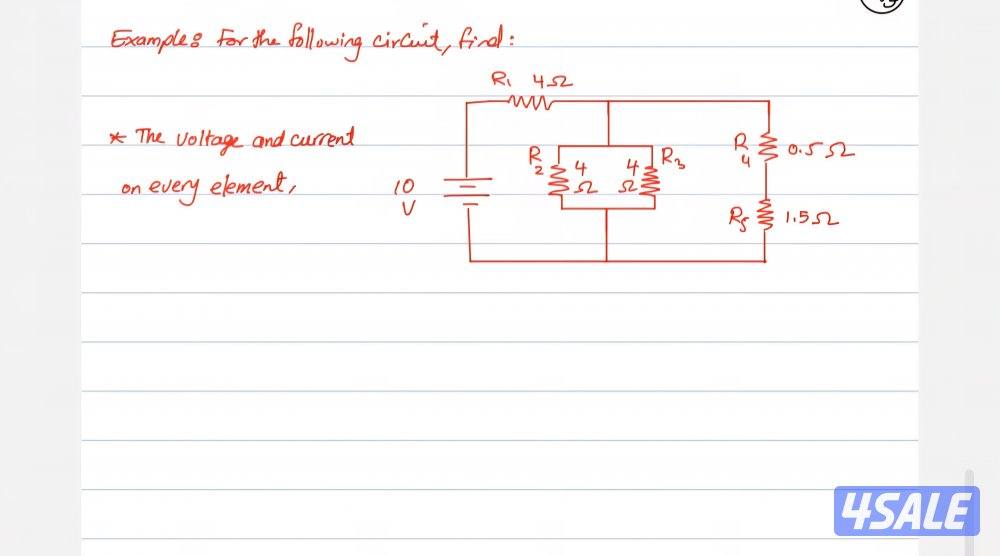 Example: For the following circuit, find:
* The voltage and current
on every element,
R1 4Ω
10
V
R2 4
Ω
4
Ω R3
R4 0.5Ω
R5 1.5Ω
4SALE